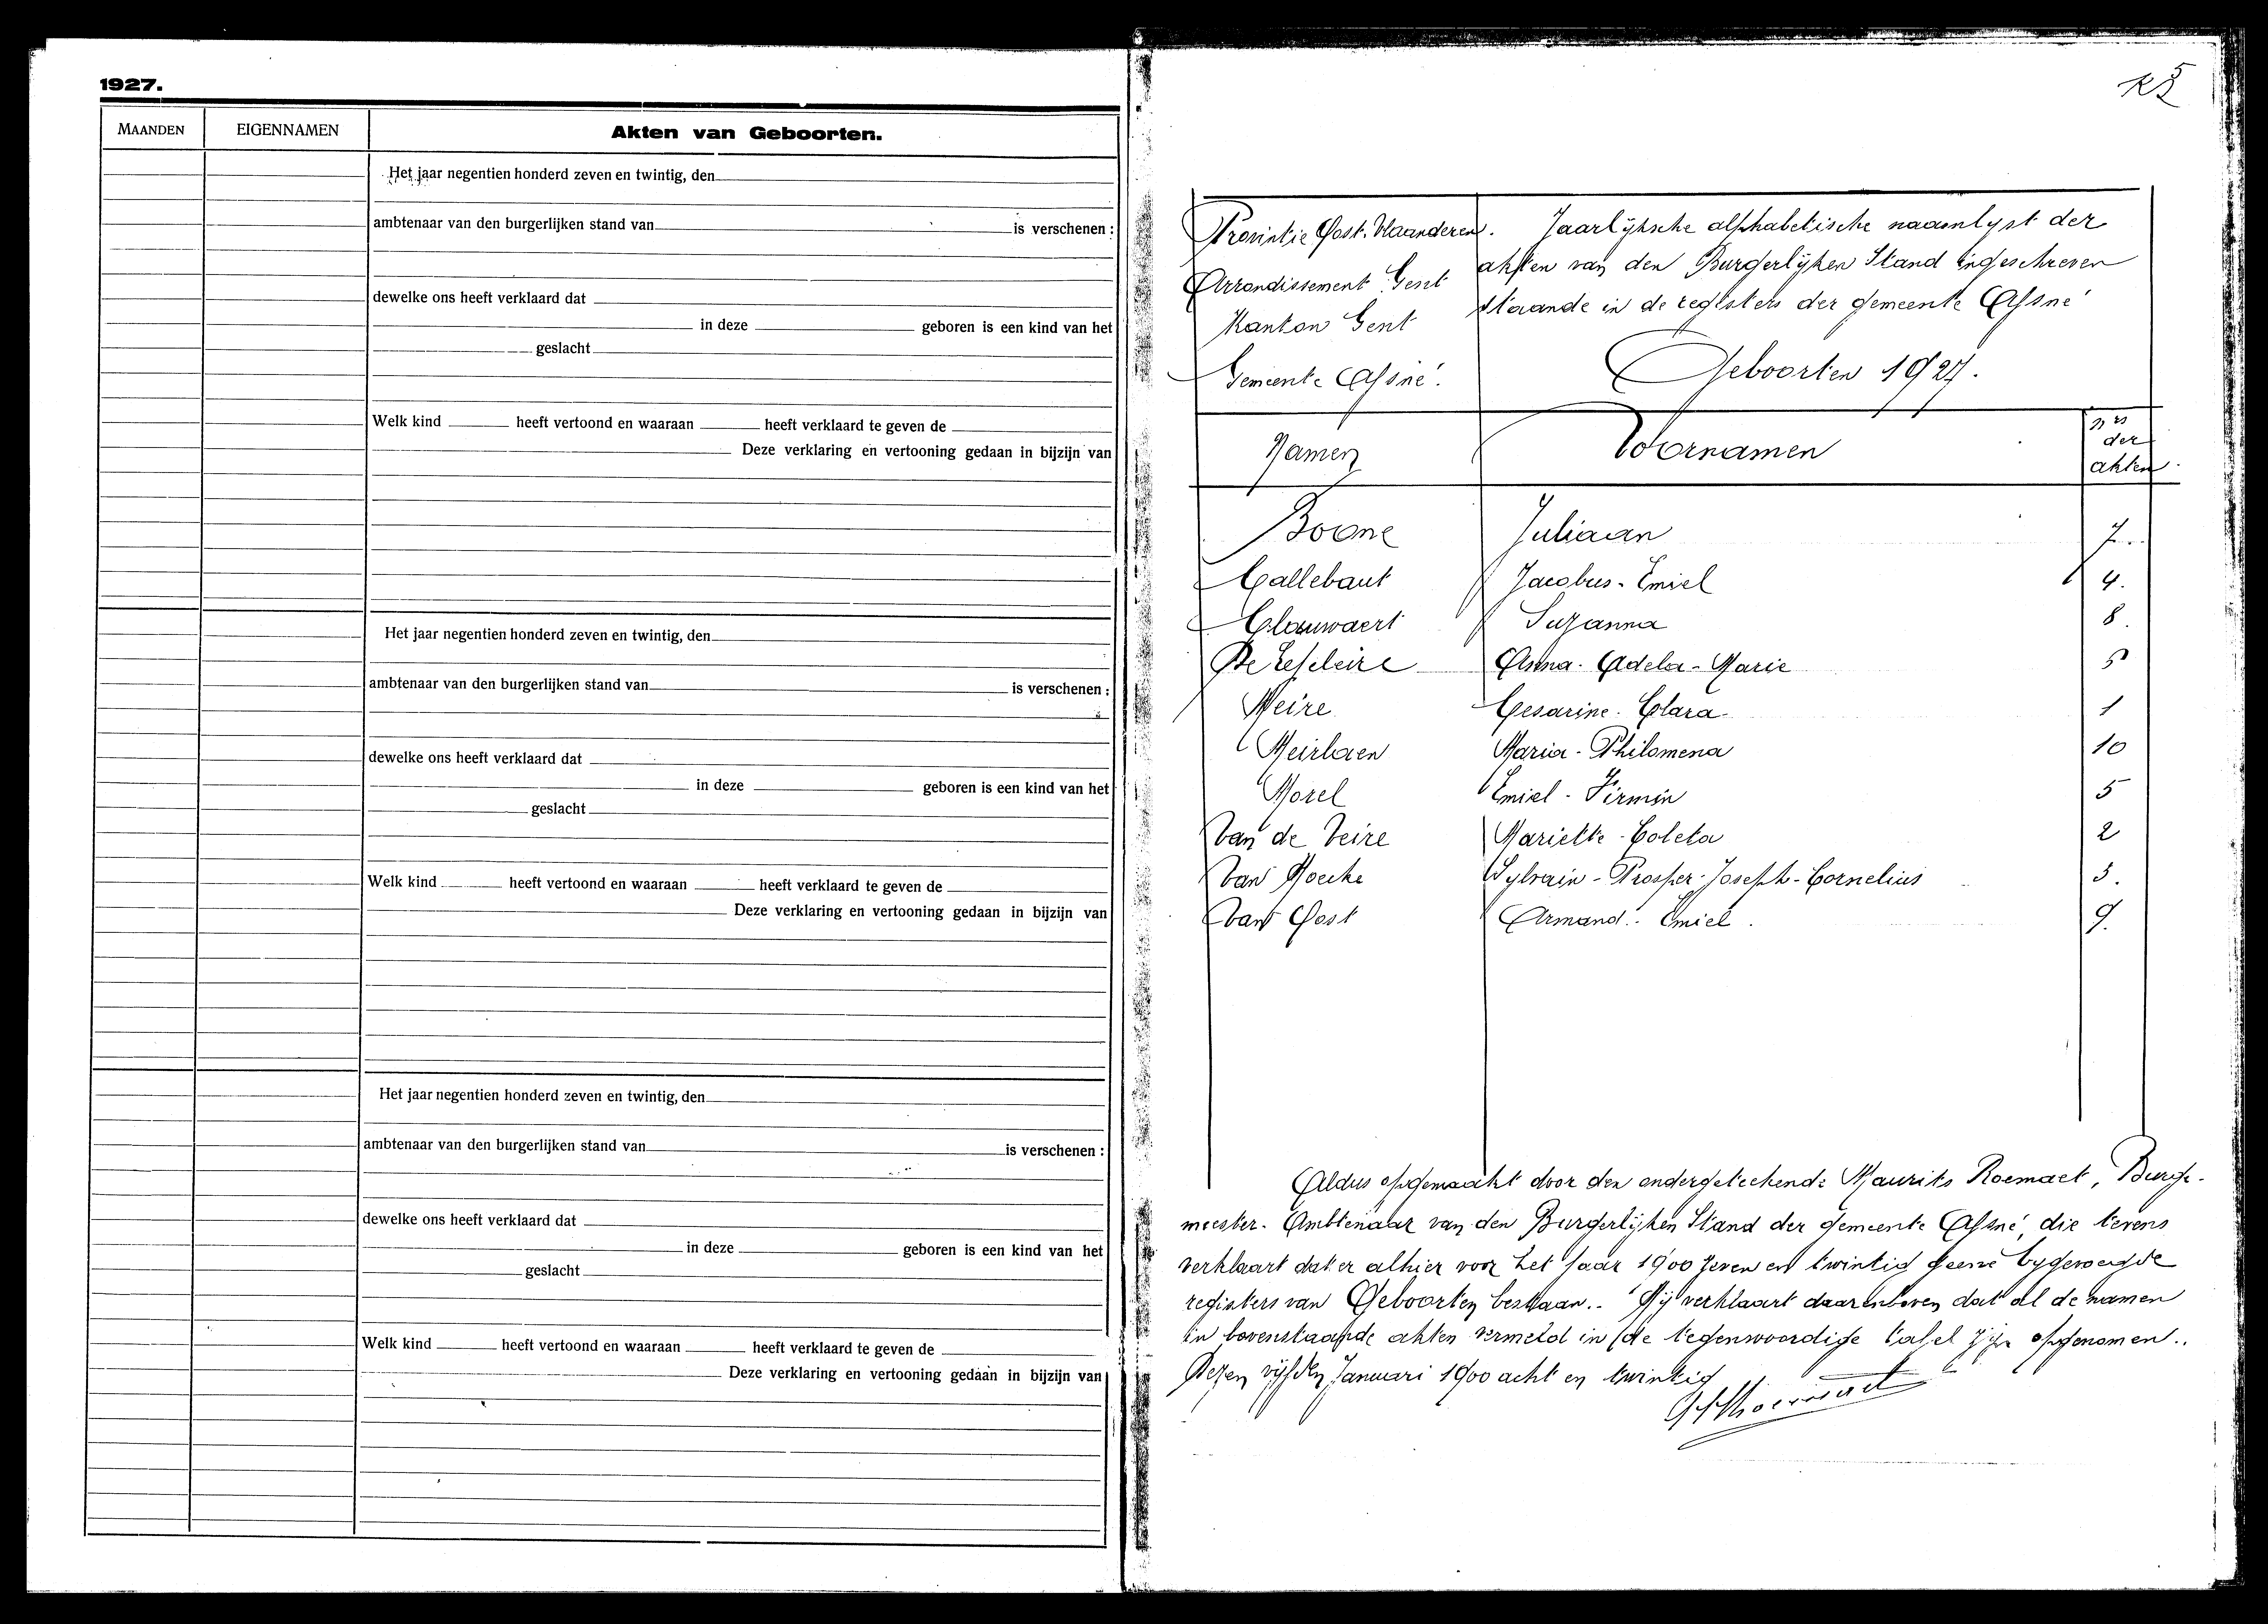 1927.
MAANDEN EIGENNAMEN Akten van Geboorten.
Het jaar negentien honderd zeven en twintig, den
ambtenaar van den burgerlijken stand van is verschenen :
dewelke ons heeft verklaard dat
in deze geboren is een kind van het
geslacht
Welk kind heeft vertoond en waaraan heeft verklaard te geven de
Deze verklaring en vertooning gedaan in bijzijn van
Het jaar negentien honderd zeven en twintig, den
ambtenaar van den burgerlijken stand van is verschenen :
dewelke ons heeft verklaard dat
in deze geboren is een kind van het
geslacht
Welk kind heeft vertoond en waaraan heeft verklaard te geven de
Deze verklaring en vertooning gedaan in bijzijn van
Het jaar negentien honderd zeven en twintig, den
ambtenaar van den burgerlijken stand van is verschenen :
dewelke ons heeft verklaard dat
in deze geboren is een kind van het
geslacht
Welk kind heeft vertoond en waaraan heeft verklaard te geven de
Deze verklaring en vertooning gedaan in bijzijn van
Provintie Oost-Vlaanderen.
Arrondissement Gent
Kanton Gent
Gemeente Afsné.
Jaarlijksche alphabetische naamlyst der
akten van den Burgerlijken Stand ingeschreven
staande in de registers der gemeente Afsné
Geboorten 1927.
Namen Voornamen nrs der akten.
Boone Juliaan 7.
Callebaut Jacobus - Emiel 4.
Clauwaert Suzanna 8.
Anna - Adela - Marie
Meire Cesarine - Clara 1
Meirlaen Maria - Philomena 10
Morel Emiel - Firmin 5
Van de Veire Mariette - Coleta 2
Van Hoecke Sylvain - Prosper - Joseph - Cornelius
Van Oost Armand - Emiel. 9.
Aldus opgemaakt door den ondergeteekende Maurits Roemaet, Burge-
meester - Ambtenaar van den Burgerlijken Stand der gemeente Afsné, die tevens
verklaart dat er alhier voor het jaar 1900 zeven en twintig geene bygevoegde
registers van Geboorten bestaan.. Hij verklaart daarenboven dat al de namen
in bovenstaande akten vermeld in de tegenwoordige tafel zijn opgenomen..
Dezen vijfden Januari 1900 acht en twintig